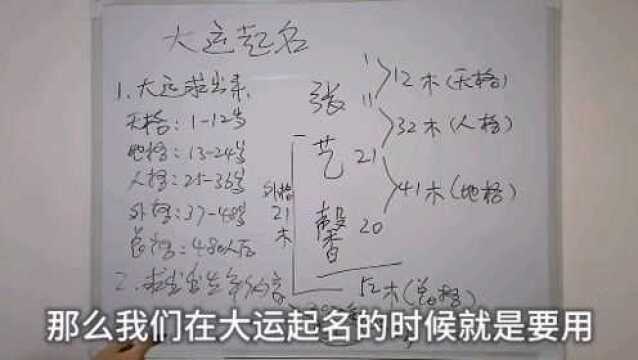 大运起名
1. 大运求出来
天格:1-12岁
地格:13-24岁
人格:25-36岁
外格:37-48岁
总格:48以后
外格
21
木
张 11
艺 21
馨 20
1
12木(天格)
32木(人格)
41木(地格)
52木(总格)
那么我们在大运起名的时候就是要用